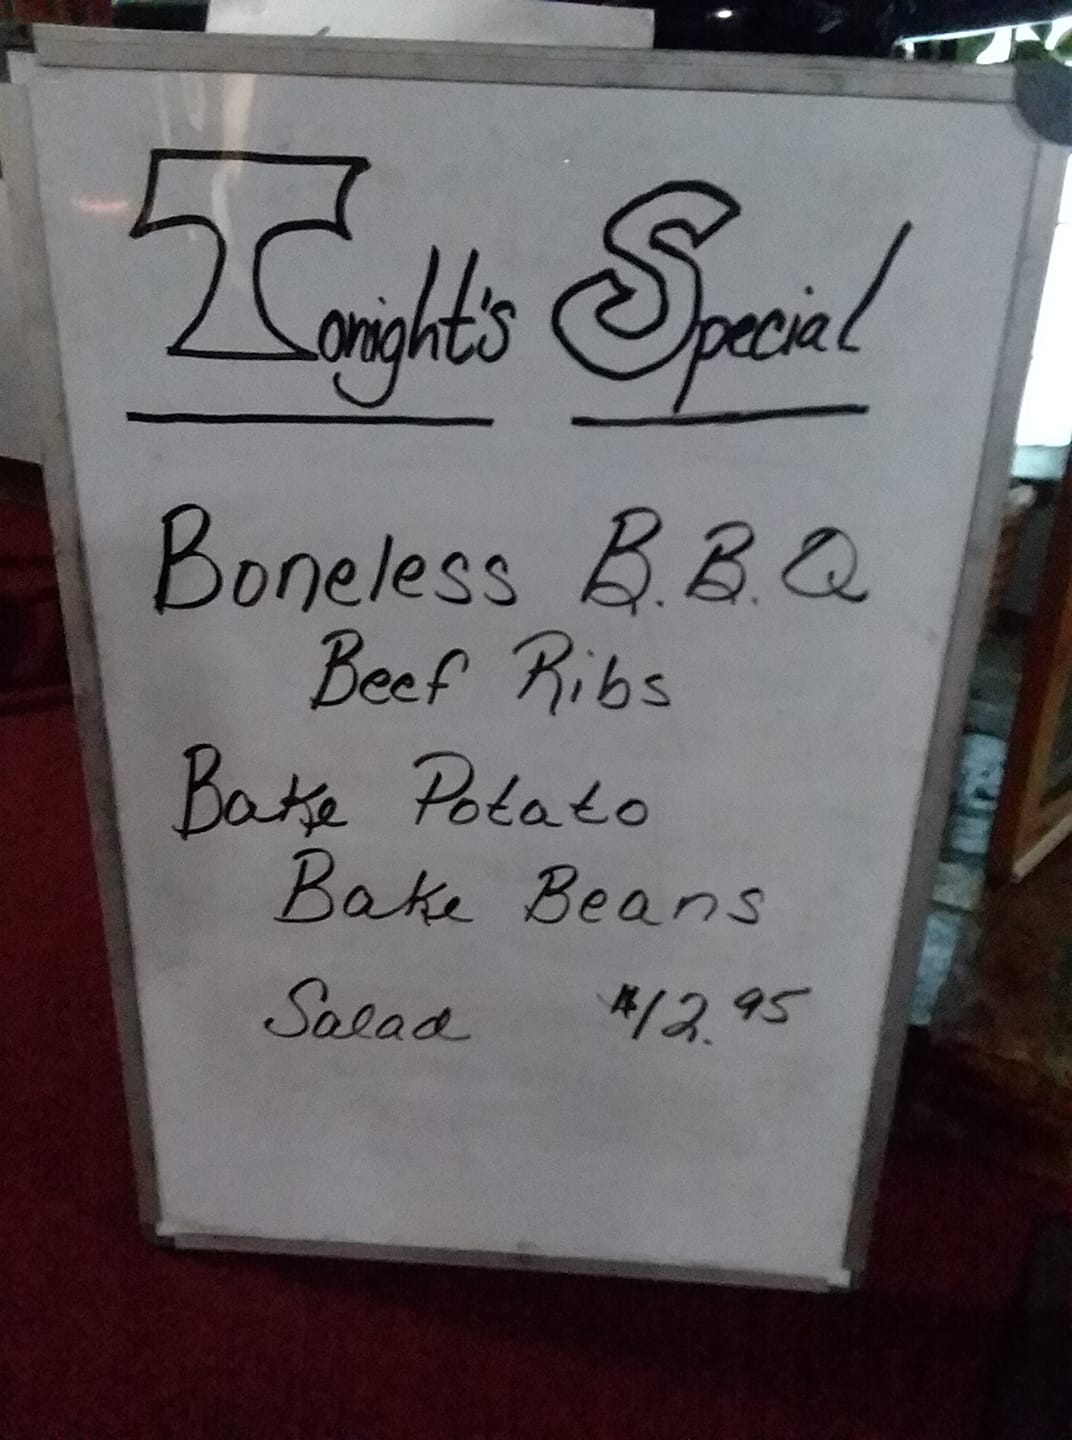 Tonight's Special
Boneless B.B.Q
Beef Ribs
Bake Potato
Bake Beans
Salad $12.95